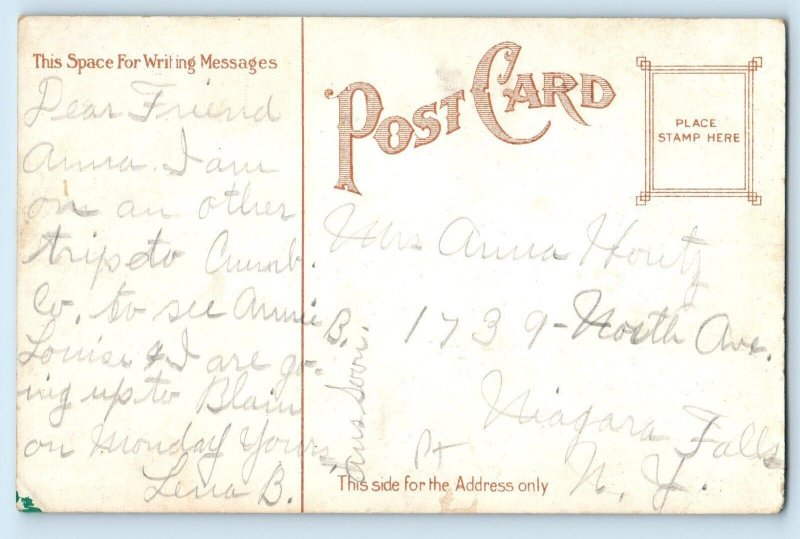 This Space For Writing Messages
Dear Friend
Anna. I am
on an other
trip to Cumb.
Co. to see Annie B.
Louise & I are go-
ing up to Blain
on Monday Yours,
Lena B.
ans soon.
POST CARD
PLACE
STAMP HERE
Mrs Anna Houtz
1739-North Ave.
Niagara Falls
N. Y.
This side for the Address only